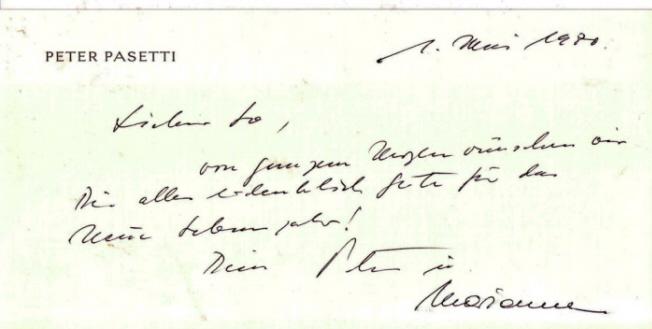 PETER PASETTI
1. Mai 1980.
Lieber Lo,
von ganzem Herzen wünschen wir
Dir alles erdenklich Gute für das
Neue Lebensjahr!
Dein Peter u.
Marianne